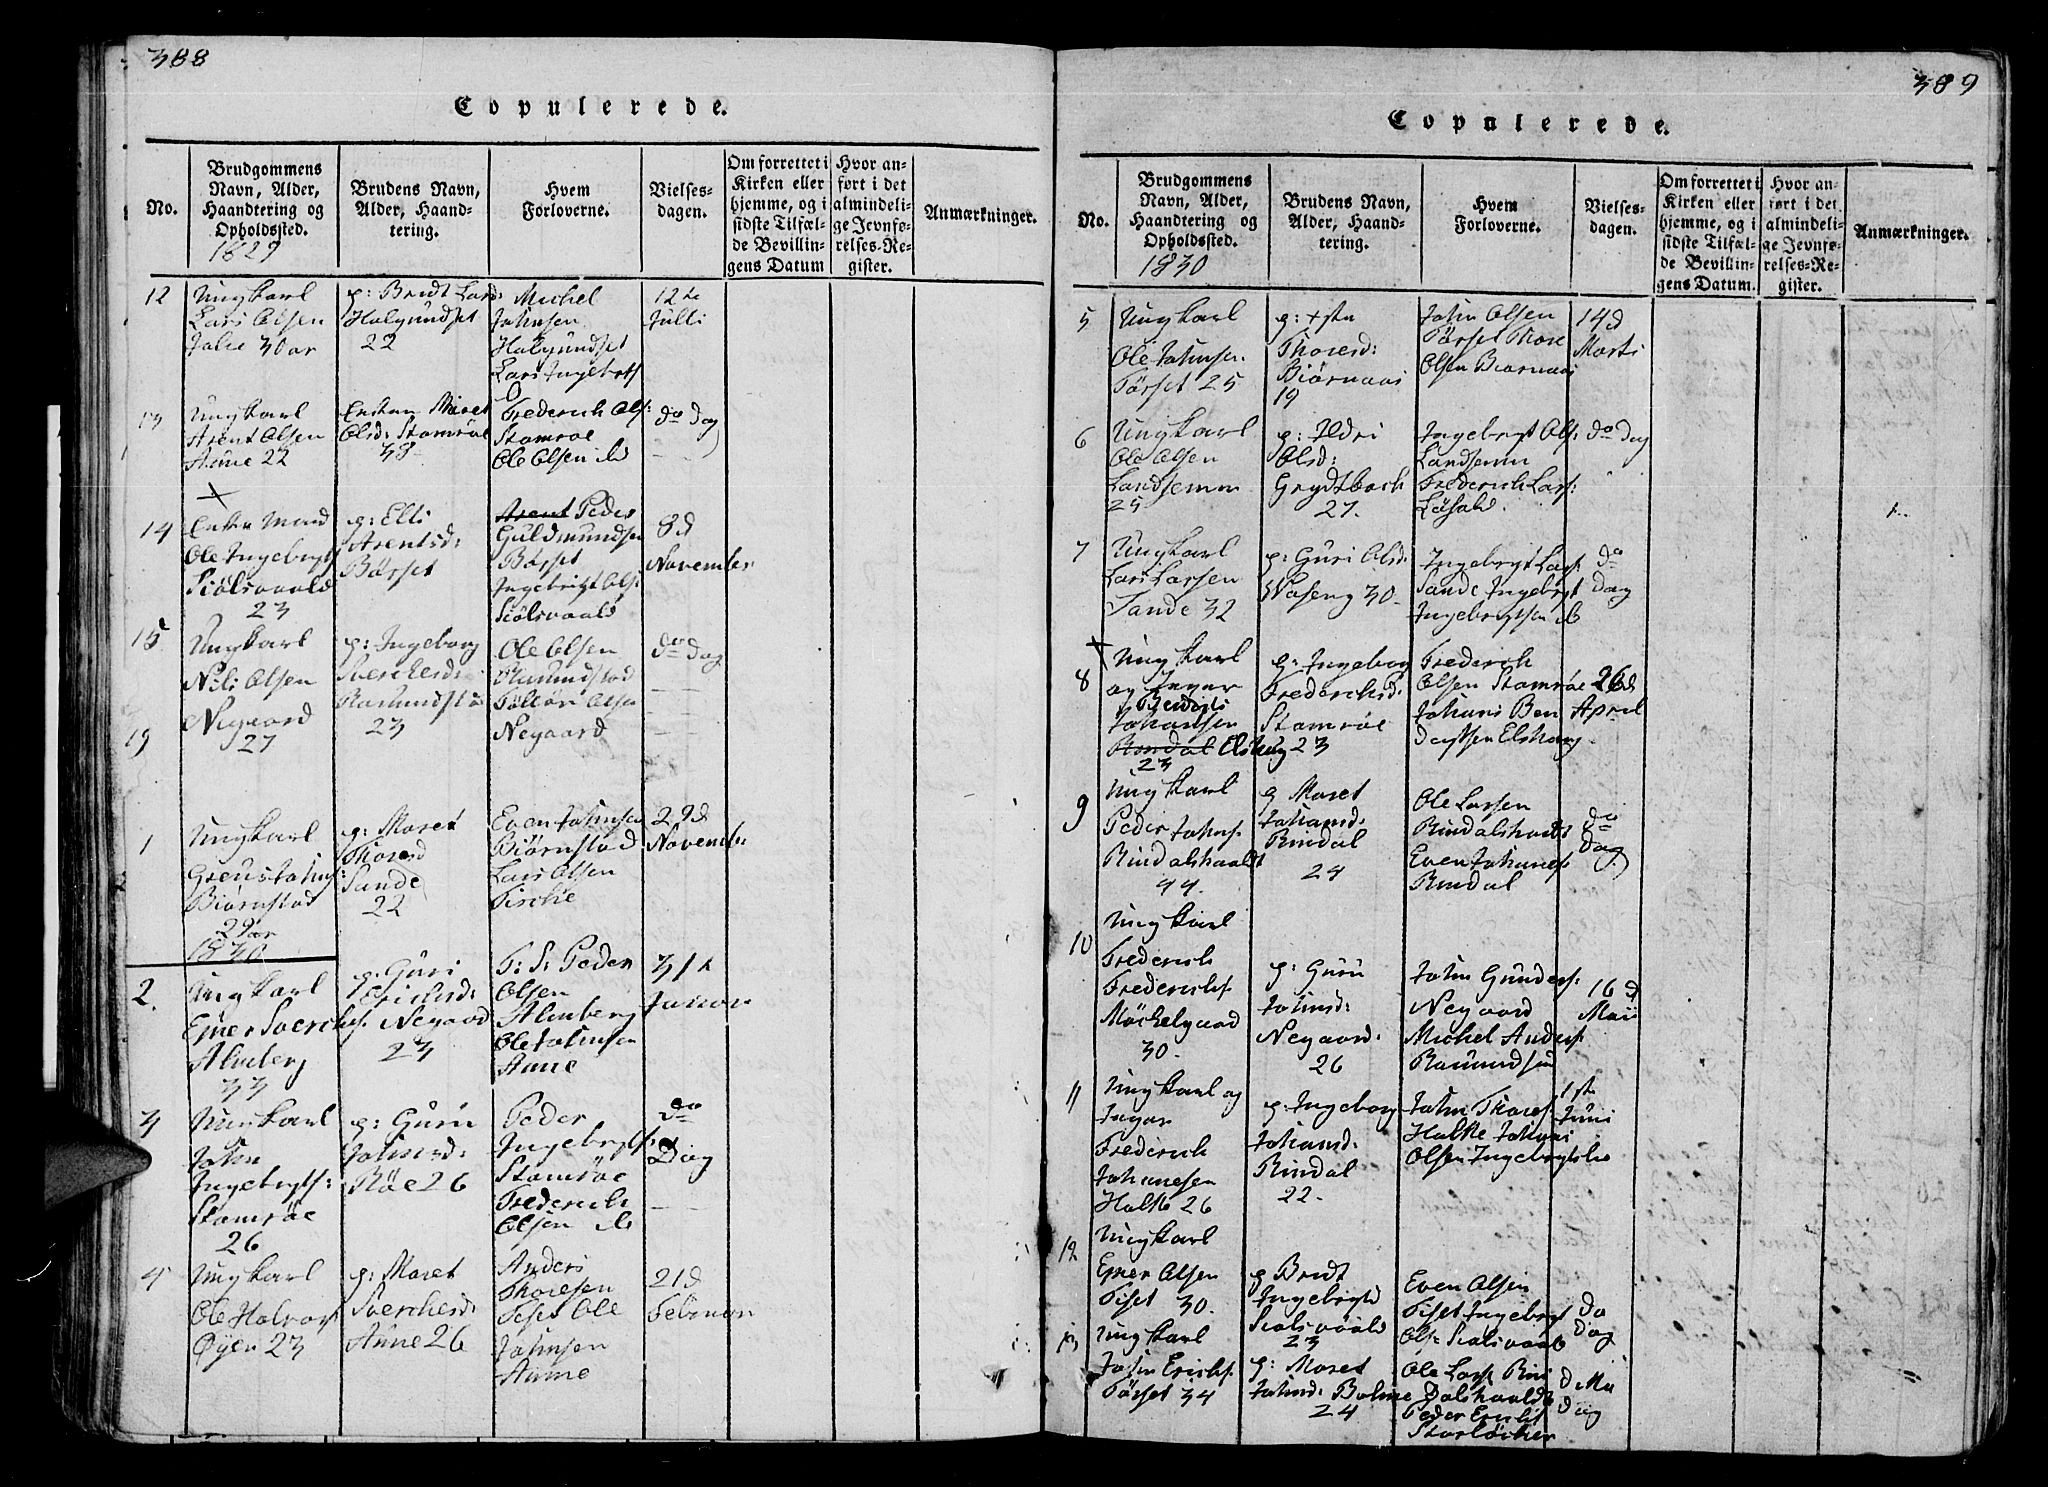 388
Copulerede.
No.
Brudgommens
Navn, Alder,
Haandtering og
Opholdssted.
1829
Brudens Navn,
Alder, Haand-
tering.
Hvem
Forloverne.
Vielses-
dagen.
Om forrettet i
Kirken eller
hjemme, og i
sidste Tilfæl-
de Bevillin-
gens Datum
Hvor an-
ført i det
almindeli-
ge Jevnfø-
relses-Re-
gister.
Anmærkninger.
12
Ungkarl
Lars Olsen
30 ar
p: Bridt Lars
Halgundset
22
Michel
Johnsen
Halgundset
Lars Ingebrets
12te
Julli
13
Ungkarl
Arent Olsen
Aune 22
Enken Maret
Olsd: Stamrøe
38
Frederich Ols:
Stamröe
Ole Olsen ib
do Dag
14
Enke Mand
Ole Ingebrigts
Siølsvaald
23
p: Elli
Arentsd:
Børset
Arent Peder
Guldmundsen
Børset
Ingebrigt Ols:
Siølsvaald
8d
November
15
Ungkarl
Nils Olsen
Negaard
27
p: Ingeborg
Sverchesd:
Rasmundstu
23
Ole Olsen
Rasmundstad
Olsen
Negaard
do Dag
19
1
Ungkarl
Johns:
Biørnstad
29 ar
1830
p: Maret
Thoresd
Sande
22
Even Johnsen
Biörnstad
Lars Olsen
Fiske
29d
Novemb:
2.
Ungkarl
Ejner Sverches:
Almberg
33
p: Guri
Erichsd:
Negaard
23
T: S: Peder
Olsen
Almberg
Ole Johnsen
Aune
31te
Januar
3
Ungkarl
John
Ingebrygts:
Stamröe
26
p: Guru
Johnsd:
Röe 26
Peder
Ingebrygts:
Stamröe
Frederich
Olsen ib
do
Dag
4
Ungkarl
Ole Halvors
Øyen 23
p: Maret
Sverchesd:
Aune 26
Anders
Thoresen
Tiset Ole
Johnsen
Aune
21d
Februar
389
Copulerede.
No.
Brudgommens
Navn, Alder,
Haandtering og
Opholdssted.
1830
Brudens Navn,
Alder, Haand-
tering.
Hvem
Forloverne.
Vielses-
dagen.
Om forrettet i
Kirken eller
hjemme, og i
sidste Tilfæl-
de Bevillin-
gens Datum.
Hvor an-
ført i det
almindeli-
ge Jevnfø-
relses-Re-
gister.
Anmærkninger.
5
Ungkarl
Ole Johnsen
Törset 25
p:
Thoresd:
Biörnaas
19
John Olsen
Törset Thore
Olsen Biørnaas
14d
Marti
6
Ungkarl
Ole Olsen
Landsemm
25
p: Ildri
Olsd:
Grydtbach
27.
Ingebrygt Ols:
Landsemm
Frederich Lars:
do Dag
7
Ungkarl
Lars Larsen
Sande 32
p: Guri Olsd:
30
Ingebrygt Lars:
Sande Ingebrygt
Ingebrygtsen ib
do
Dag
8
Ungkarl
og
Johansen
Rindal Elshaug
23
p: Ingeborg
Frederichsd:
Stamröe
23
Frederich
Olsen Stamröe
Johans Ben
Elshaug
26d
April
9
Ungkarl
Peder Johns:
Rindalshaalt
44.
p Maret
Johansd:
Rindal
24
Ole Larsen
Rindalshaalt
Even Johanes:
Rindal
do
Dag
10
Ungkarl
Frederich
Frederichs:
Möchelgaard
30.
p: Guru
Johnsd:
Negaard:
26
John Gunders:
Negaard
Michel Anders:
16 d
Maii
11
Ungkarl og
Frederich
Johansen
Halte 26
p: Ingeborg
Johansd:
Rindal
22.
John Thores:
Halte Johans
Olsen Ingebrygtslie
1ste
Juni
12
Ungkarl
Ejner Olsen
Tiset 30.
p Bridt
Ingebrygtd
23
Even Olsen
Tiset Ingebrygt
Ols:
do
Dag
13
Ungkarl
John Erichs:
Törset 34
p: Maret
Johnsd: Bolme
24
Ole Lars: Rin
dalshaalt
Peder
Dag